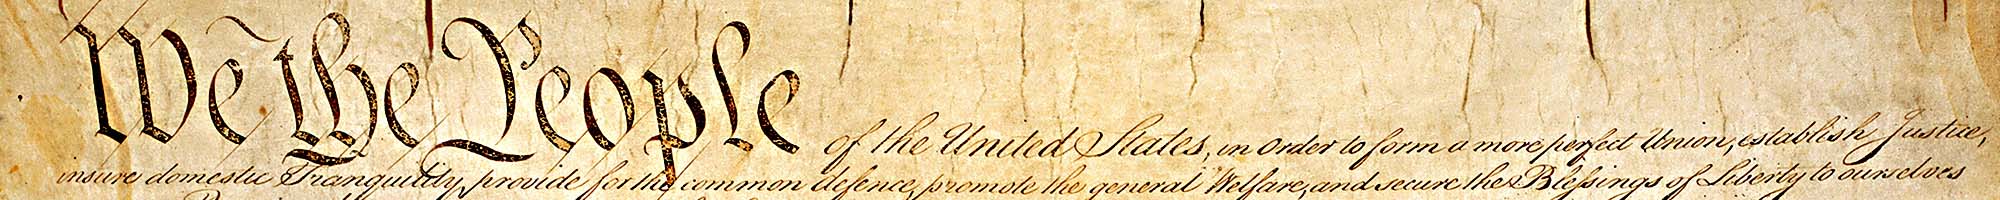 We the People of the United States, in Order to form a more perfect Union, establish Justice,
insure domestic Tranquility, provide for the common defence, promote the general Welfare, and secure the Blessings of Liberty to ourselves